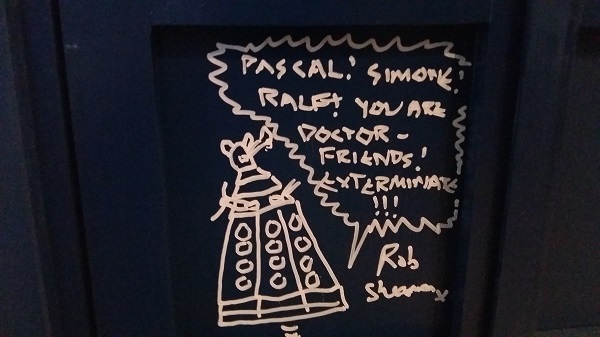 PASCAL! SIMONE!
RALF! YOU ARE
DOCTOR-
FRIENDS!
EXTERMINATE
!!!
Rob
Shearman x